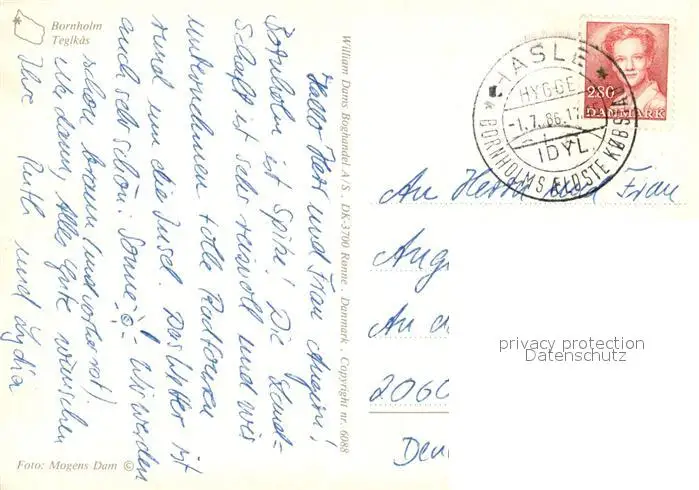 Bornholm
Teglkås
Hallo Herr und Frau
Bornholm ist Spitze! Die Land-
schaft ist sehr reizvoll und wir
unternehmen tolle Radtouren
rund um die Insel. Das Wetter ist
auch sehr schön: Sonne! Wir werden
schön braun (und vorher rot).
Na dann, Alles Gute wünschen
Ihre Ruth und Lydia
Foto: Mogens Dam ©
William Dams Boghandel A/S . DK-3700 Rønne . Danmark . Copyright nr. 6088
HASLE
HYGGE
-1.7.86.17
IDYL
BORNHOLMS ÆLDSTE KØBSTAD
2.80
DANMARK
An Herrn und Frau
Aug
An d
2060
Deu
privacy protection
Datenschutz